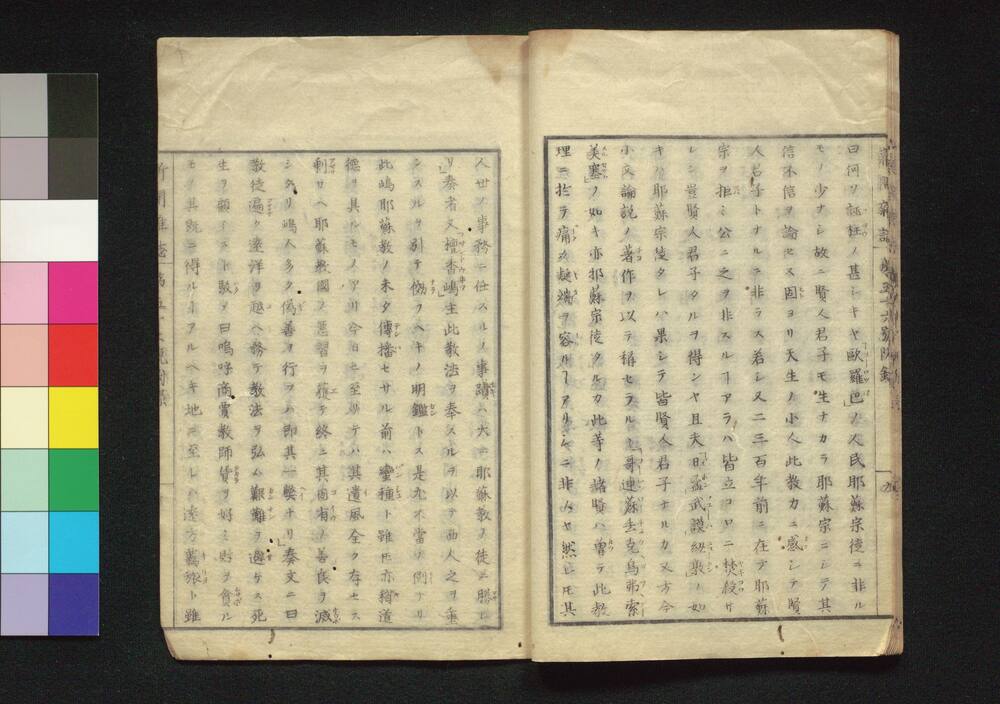 曰何ソ誣枉ノ甚シキヤ歐羅巴ノ人民耶蘇宗徒ニ非ル
モノ少ナシ故ニ賢人君子モ生ナカラ耶蘇宗ニシテ其
信不信ヲ論セス固ヨリ天生ノ小人此教カニ感シテ賢
人君子トナルニ非ラス若シ又二三百年前ニ在テ耶蘇
宗ヲ拒ミ公ニ之ヲ非スルヿアラハ皆立コロニ焚殺サ
レン豈賢人君子タルヲ得ンヤ且夫
キハ耶蘇宗徒タレハ果シテ皆賢人君子ナルカ又方今
小文論説ノ著作ヲ以テ稱セラルヽ哥連蘇去克烏弗索
美塞ノ如キ亦耶蘇宗徒タルカ此等ノ諸賢ハ曽テ此教
理ニ於テ痛ク疑端ヲ容ルヿアリシニ非スヤ然レ𪜈其
人世ノ事務ニ仕スルノ事蹟ハ大ニ耶蘇教ノ徒ニ勝レ
リ」奏者又檀香嶋生此教法ヲ奉スルヲ以テ西人之ヲ重
ンスルヲ引テ傚フヘキノ明鑑トス是尤不當ノ例ナリ
此嶋耶蘇教ノ未タ傳播セサル前ハ蠻種ト雖𪜈亦稍道
德ヲ具ルモノアリ今日ニ至リテハ其遺風全ク存セス
剰サヘ耶蘇教國ノ悪習ヲ獲テ終ニ其固有ノ善良ヲ滅
シタリ嶋人多ク偽善ヲ行フハ即其一弊ナリ」奏文ニ曰
教徒遍ク遠洋ヲ越ヘ務テ教法ヲ弘ム艱難ヲ避ケス死
生ヲ顧ミスト駁シ曰嗚呼商賈教師賃ヲ好ミ財ヲ貪ル
モノ其既ニ得ルヿアルヘキ地ニ至レハ遠方羇旅ト雖